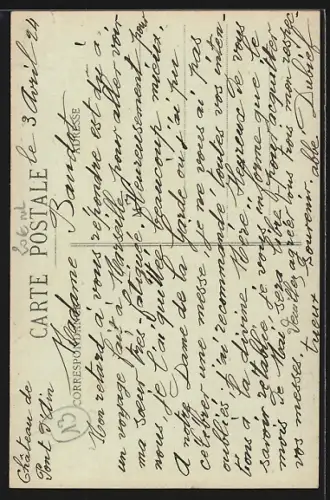 Château de
Pont d'Ain
le 3 Avril 24
CARTE POSTALE
CORRESPONDANCE
ADRESSE
Madame Baudot
Mon retard à vous répondre est dû à
un voyage fait à Marseille pour aller voir
ma sœur très fatiguée. Heureusement pour
nous je l'ai quittée beaucoup mieux.
A Notre Dame de la Garde où j'ai pu
célébrer une messe, je ne vous ai pas
oubliés j'ai recommandé toutes vos inten-
tions à la divine Mère. Heureux de vous
savoir rétablie je vous informe que le
mois de Mai sera libre pour acquitter
vos messes. Veuillez agréer tous trois mon respec-
tueux souvenir. abbé Dubief